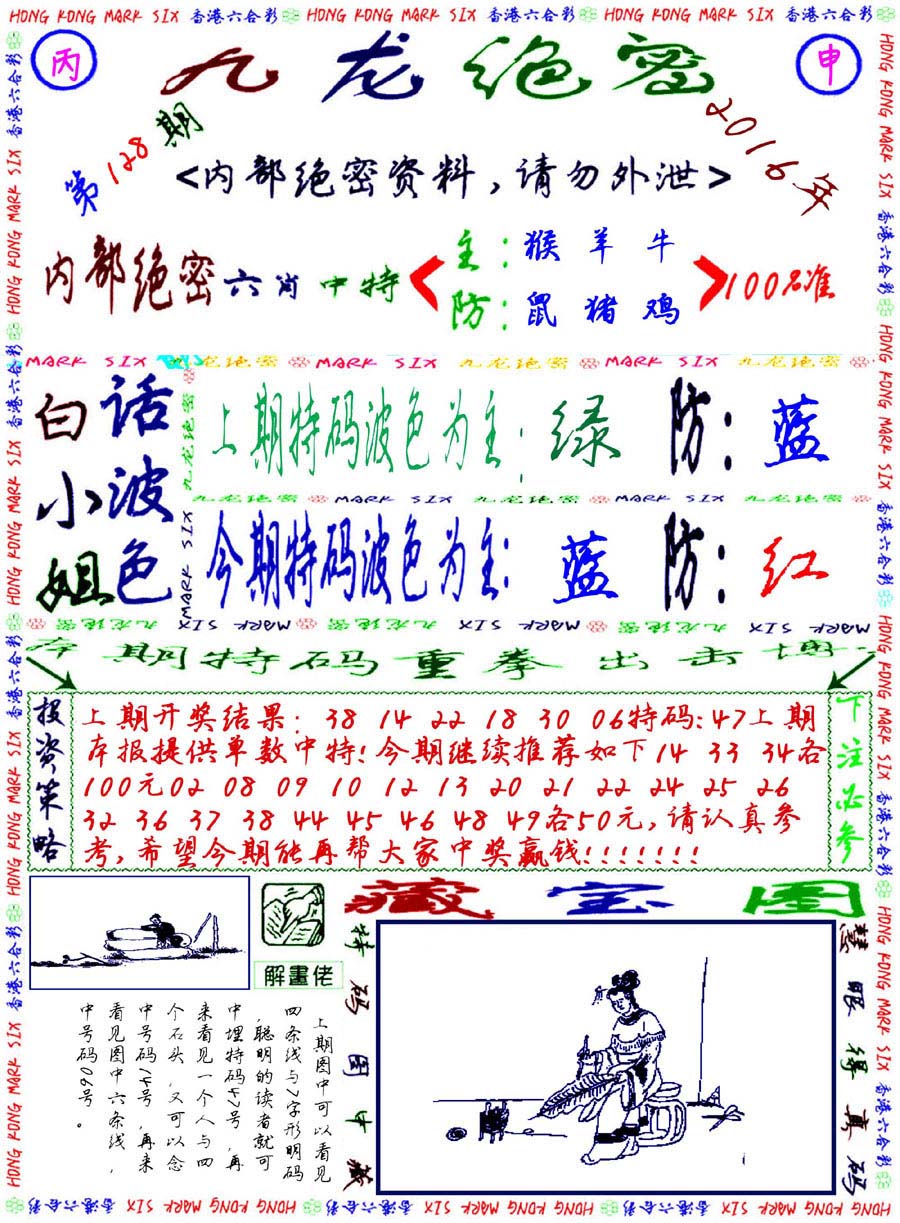 HONG KONG MARK SIX 香港六合彩 HONG KONG MARK SIX 香港六合彩 HONG KONG MARK SIX 香港六合彩
丙
九龙绝密
申
第128期
2016年
<内部绝密资料,请勿外泄>
内部绝密六肖中特
主:猴羊牛
防:鼠猪鸡
100%准
MARK SIX 九龙绝密 MARK SIX 九龙绝密 MARK SIX 九龙绝密
白小姐
话波色
上期特码波色为主:绿 防:蓝
九龙绝密 MARK SIX 九龙绝密 MARK SIX 九龙绝密
今期特码波色为主:蓝 防:红
九龙绝密 MARK SIX 九龙绝密 MARK SIX 九龙绝密 MARK SIX
本期特码重拳出击
投资策略
上期开奖结果:38 14 22 18 30 06特码:47上期
本报提供单数中特!今期继续推荐如下14 33 34各
100元02 08 09 10 12 13 20 21 22 24 25 26
32 36 37 38 44 45 46 48 49各50元,请认真参
考,希望今期能再帮大家中奖赢钱!!!!!!!
下注必参
藏宝图
解畫佬
上期图中可以看见
四条线与7字形明码
,聪明的读者就可
中埋特码47号,再
来看见一个人与四
个石头,又可以念
中号码14号,再来
看见图中六条线,
中号码90号。
特码图中藏
慧眼得真码
HONG KONG MARK SIX 香港六合彩 HONG KONG MARK SIX 香港六合彩 HONG KONG MARK SIX 香港六合彩